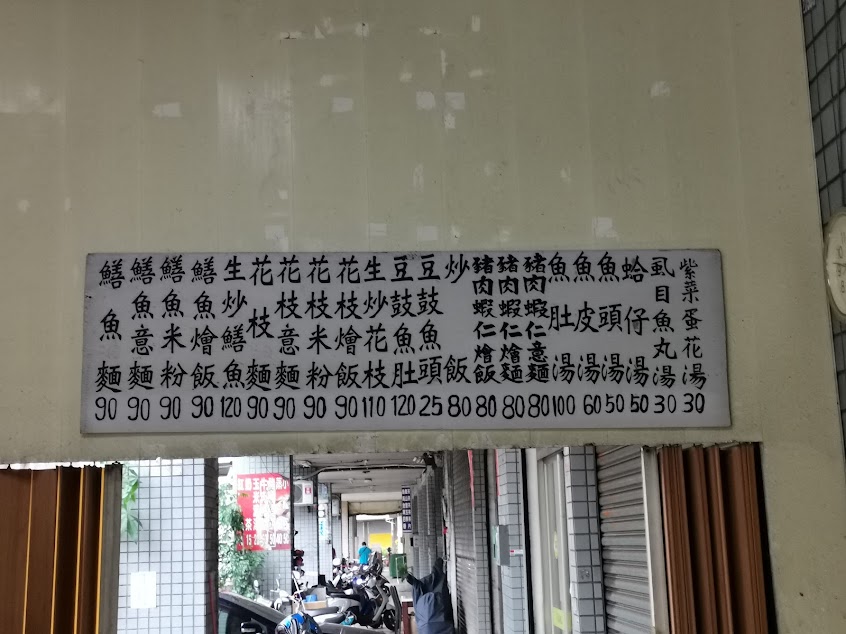 鱔魚麵 90
鱔魚意麵 90
鱔魚米粉 90
鱔魚燴飯 90
生炒鱔魚 120
花枝麵 90
花枝意麵 90
花枝米粉 90
花枝燴飯 90
生炒花枝 110
豆鼓魚肚 120
豆鼓魚頭 25
炒飯 80
豬肉蝦仁燴飯 80
豬肉蝦仁燴麵 80
豬肉蝦仁意麵 80
魚肚湯 100
魚皮湯 60
魚頭湯 50
蛤仔湯 50
虱目魚丸湯 30
紫菜蛋花湯 30